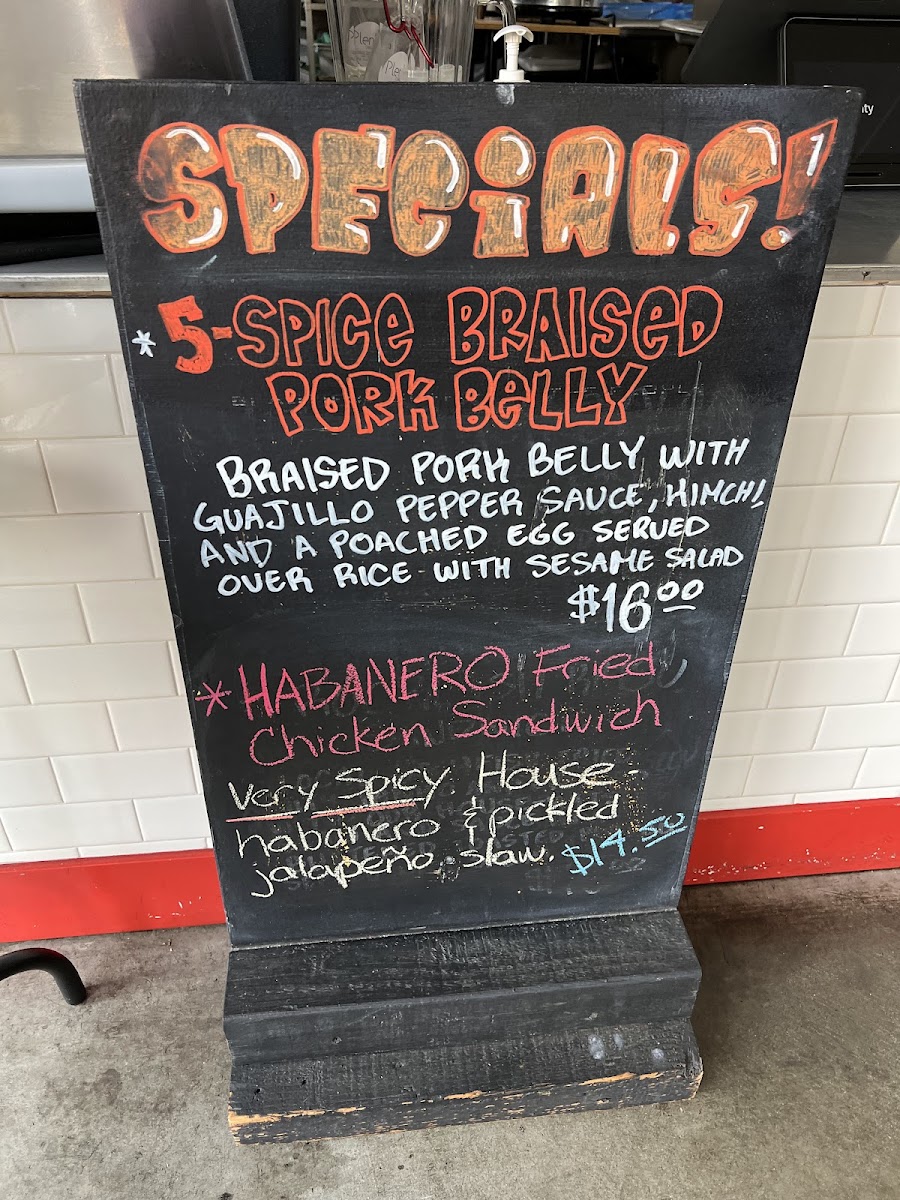 SPECiALS!
* 5-SPICE BRAISED
PORK BELLY
BRAISED PORK BELLY WITH
GUAJILLO PEPPER SAUCE, KIMCHI
AND A POACHED EGG SERVED
OVER RICE WITH SESAME SALAD
$16.00
* HABANERO Fried
Chicken Sandwich
Very Spicy House-
habanero & pickled
jalapeño slaw. $14.50